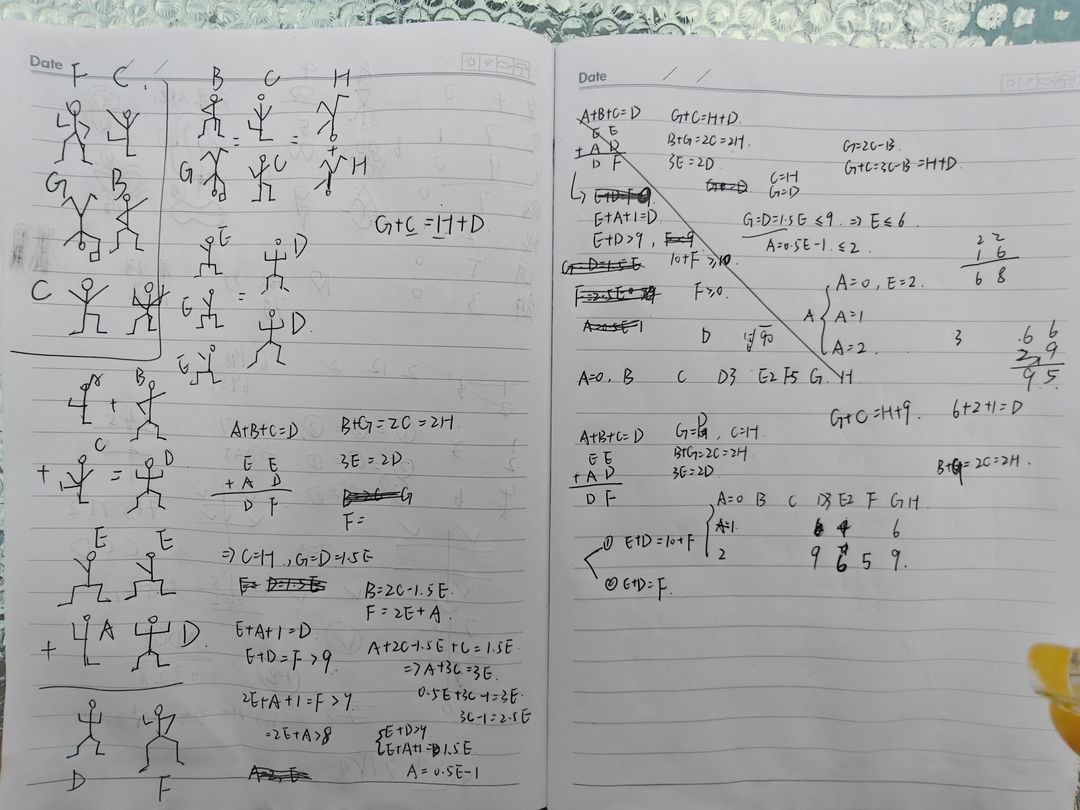 Date
F C
B C H
= =
G C H
+
G B
G+C=H+D
C
E D
E = D
E
B
+
C
+ = D
A+B+C=D
B+G=2C=2H
E E
+ A D
D F
3E=2D
F=
E E
+ A D
D F
⇒C=H, G=D=1.5E
B=2C-1.5E
F=2E+A
E+A+1=D
E+D=F>9
A+2C-1.5E+C=1.5E
⇒A+3C=3E
2E+A+1=F>9
0.5E+3C-1=3E
3C-1=2.5E
=2E+A>8
E+D>9
A=0.5E-1
Date
A+B+C=D
E E
+ A D
D F
G+C=H+D
B+G=2C=2H
3E=2D
C=H
G=D
G=2C-B
G+C=3C-B=H+D
E+A+1=D
E+D>9,
10+F≥10
F≥0
G=D=1.5E≤9 ⇒ E≤6
A=0.5E-1≤2
2 2
1 6
6 8
A
A=0, E=2
A=1
A=2
D
3
6 6
2 9
9 5
A=0, B C D3 E2 F5 G H
G+C=H+9
6+2+1=D
A+B+C=D
E E
+ A D
D F
G=D, C=H
B+G=2C=2H
3E=2D
B+G=2C=2H
① E+D=10+F
② E+D=F
A=0 B C D3 E2 F G H
A=1 6 4 6
2 9 6 5 9